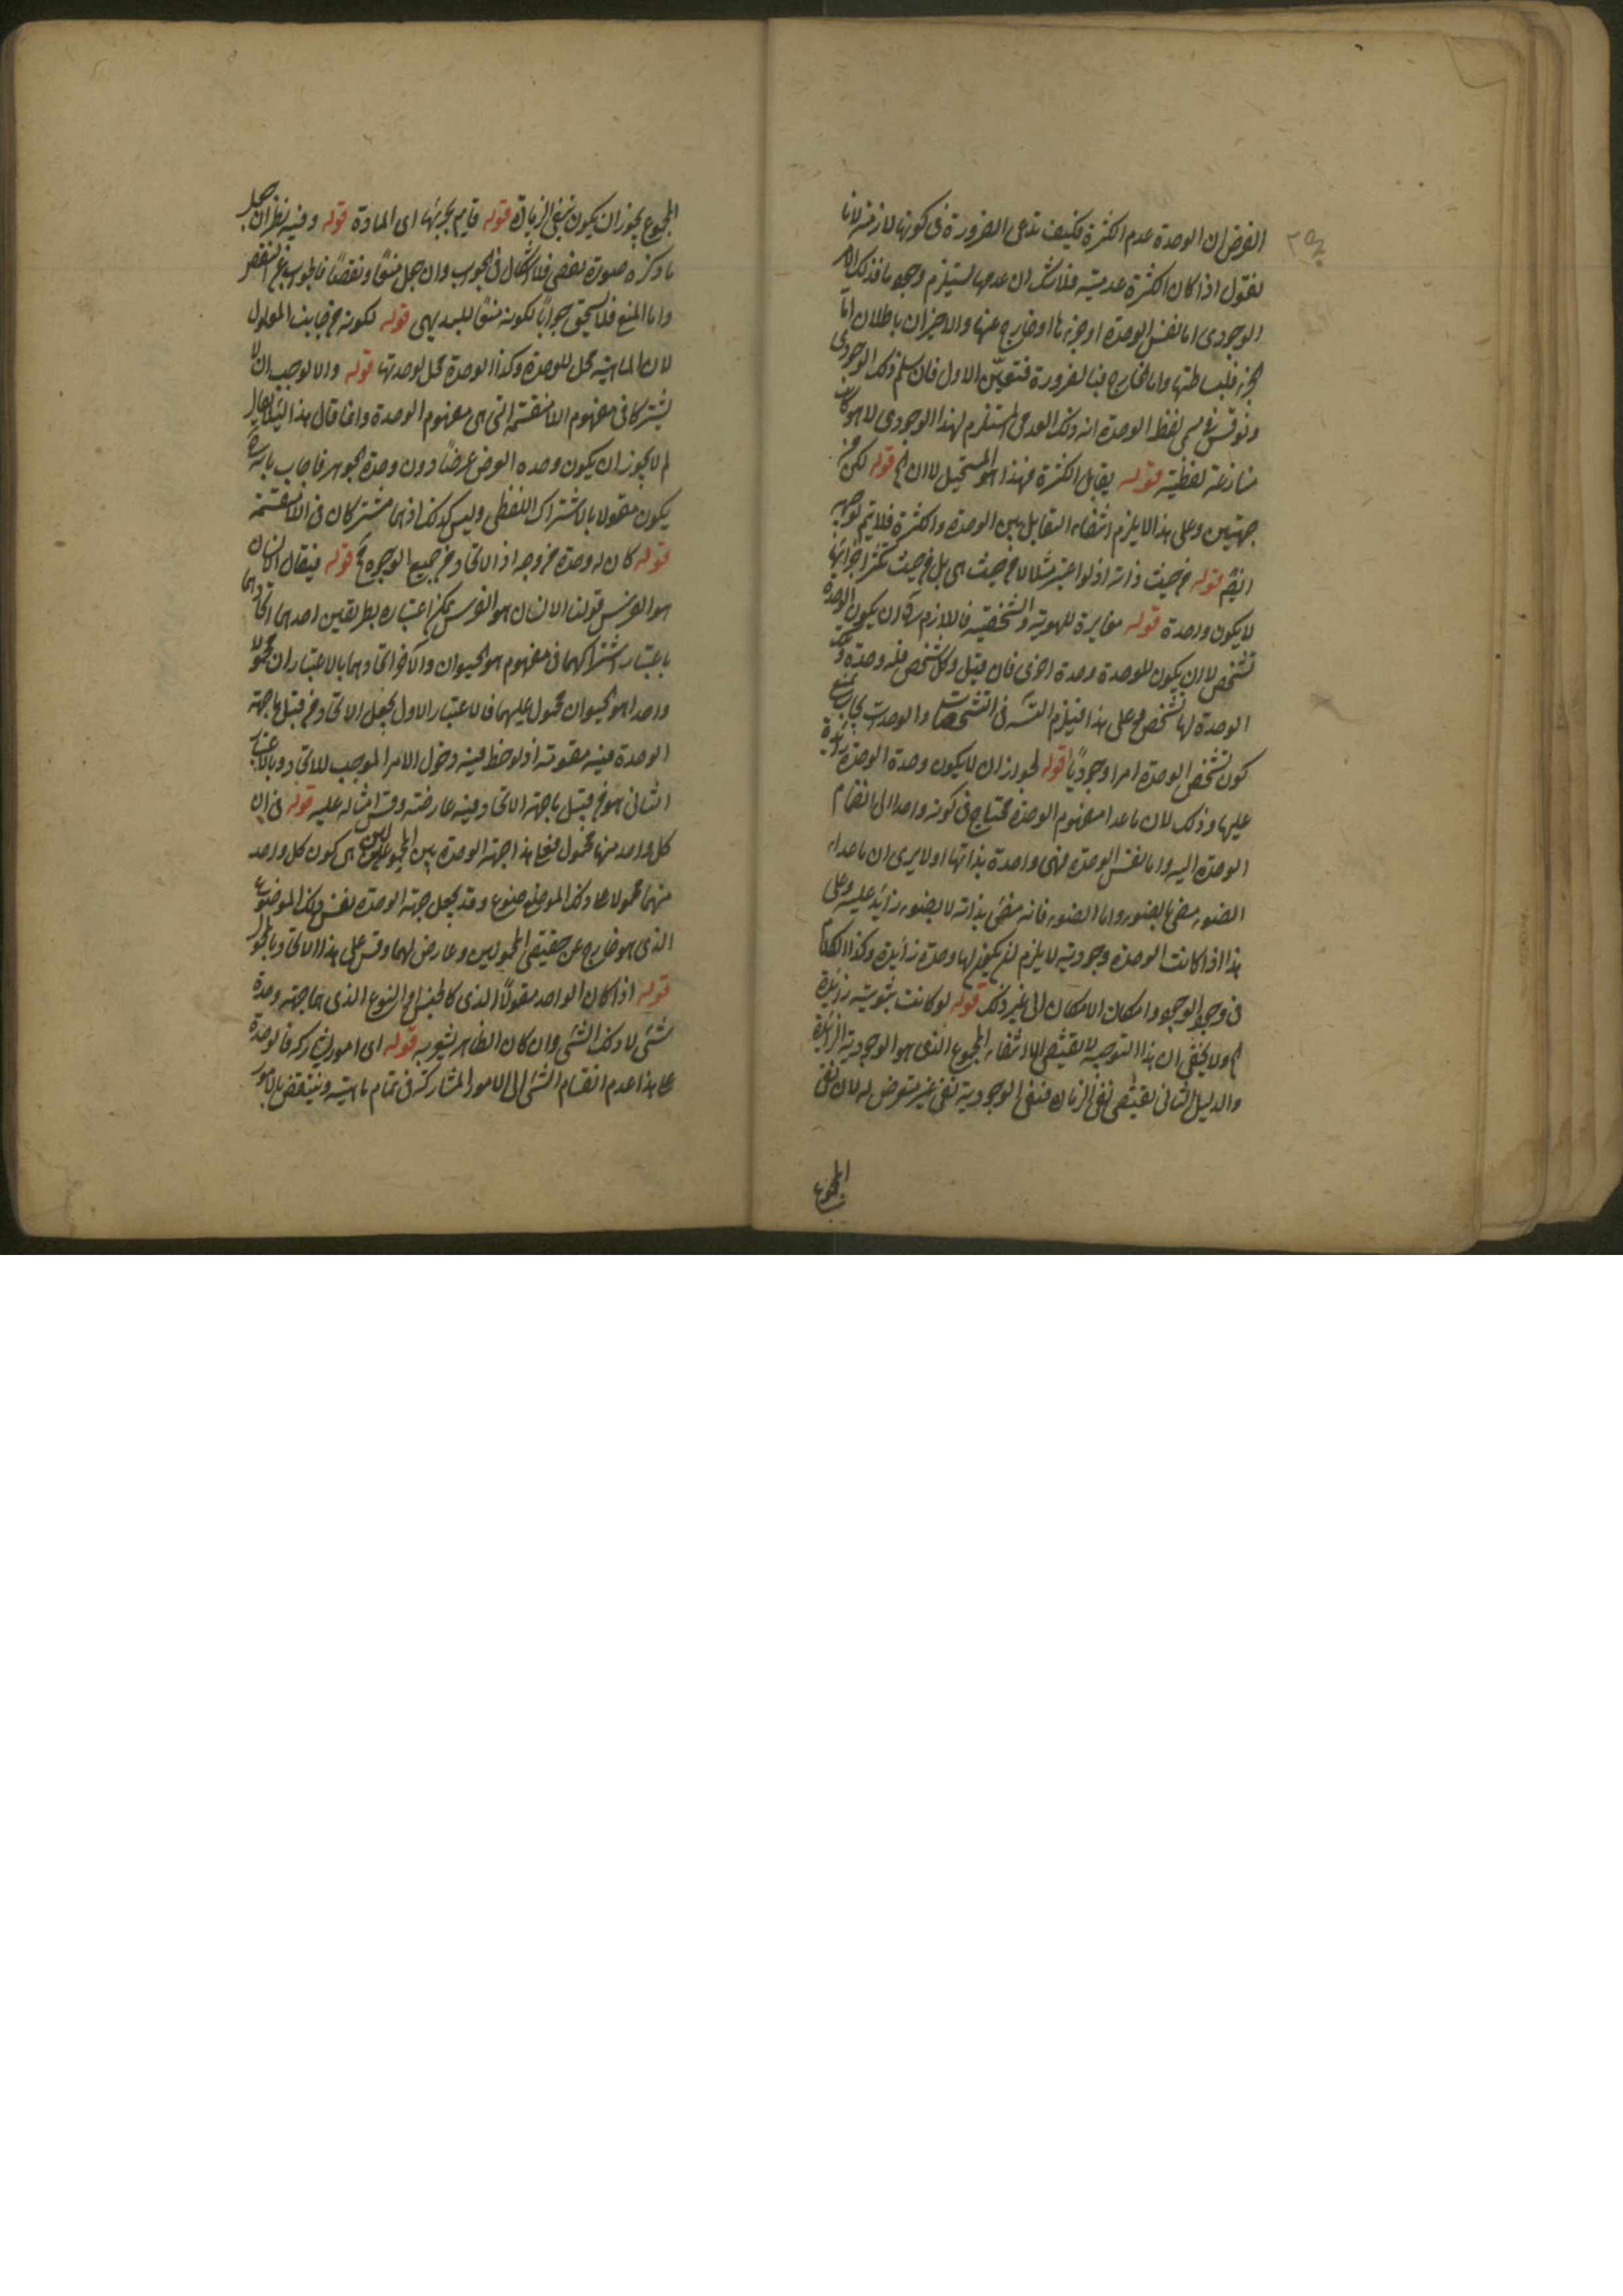 الفرض ان الوحدة عدم الكثرة فكيف تدعى الضرورة فى كونها لازمة لانا
نقول اذا كان الكثرة عدمية فلا شك ان عدمها يستلزم وجودا فذلك الامر
الوجودى اما نفس الوحدة او جزءها او خارج عنها والاخيران باطلان اما
الجزء فلبساطتها واما الخارج فبالضرورة فتعين الاول فان سلم ذلك الوجودى
ونوقش فى مسمى لفظ الوحدة انه ذلك العدمى المستلزم لهذا الوجودى لا هو كانت
منازعة لفظية قوله يقابل الكثرة فهذا هو المستحيل لا ان قوله لكن من
جهتين وعلى هذا لا يلزم انتفاء التقابل بين الوحدة والكثرة فلا يتم توجيه
قوله من حيث ذاته اذ لو اعتبر مثلا لا من حيث هى بل من حيث تكثر اجزائها
لا يكون واحدة قوله مغايرة للهوية والشخصية فاللازم ان يكون للوحدة
تشخص لا ان يكون للوحدة وحدة اخرى فان قيل وكل شخص فله وحدة
الوحدة لها تشخص وعلى هذا فيلزم التسلسل فى التشخصات والوحدات يجاب بمنع
كون تشخص الوحدة امرا وجوديا قوله لجواز ان لا يكون وحدة الوحدة زائدة
عليها وذلك لان ما عدا مفهوم الوحدة محتاج فى كونه واحدا الى انضمام
الوحدة اليه واما نفس الوحدة فهى واحدة بذاتها اولا يرى ان ما عداء
الضوء مضىء بالضوء واما الضوء فانه مضىء بذاته لا بضوء زائد عليه وعلى
هذا اذا كانت الوحدة وجودية لا يلزم ان يكون لها وحدة زائدة وكذا الكلام
فى وجود الوجود وامكان الامكان الى غير ذلك قوله لو كانت ثبوتية زائدة
ولا يخفى ان هذا التوجيه لا يقتضى الا انتفاء المجموع الذى هو الوجودية الزائدة
والدليل الثانى يقتضى نفى الزيادة فنفى الوجودية نفى غير متعرض له لان نفى
المجموع
المجموع يجوز ان يكون بنفى الزيادة قوله قايم بجزئها اى المادة قوله وفيه نظر ان جعل
ما ذكره صورة نقض فلا اشكال فى الجواب وان جعل منعا ونقضا فالجواب عن النقض
واما المنع فلا يستحق جوابا لكونه منعا للبديهى قوله لكونه من جانب المعلول
لان الماهية محل للوحدة وكذا الوحدة محل لوحدتها قوله والا لوجب ان لا
يشتركا فى مفهوم اللامنقسمة التى هى مفهوم الوحدة وانما قال هذا لئلا يقال
لم لا يجوز ان يكون وحده العرض عرضا دون وحدة الجوهر فاجاب بانه
يكون مقولا بالاشتراك اللفظى وليس كذلك اذ هما مشتركان فى اللامنقسمة
قوله كان له وحدة من وجه اذ الاتحاد من جميع الوجوه قوله فيقال الانسان
هو الفرس قولنا الانسان هو الفرس يمكن اعتباره بطريقين احدهما اتحادهما
باعتبار اشتراكهما فى مفهوم هو الحيوان والآخر اتحادهما بالاعتبار ان محمولا
واحدا هو الحيوان محمول عليهما فالاعتبار الاول يجعل الاتحاد من قبيل ما جهة
الوحدة فيه مقومة اذ لوحظ فيه دخول الامر الموجب للاتحاد وبالاعتبار
الثانى هو من قبيل ما جهة الاتحاد فيه عارضة وقس امثاله عليه قوله فى ان
كل واحد منهما محمول فعلى هذا جهة الوحدة بين المحمولين هى كون كل واحد
منهما محمولا على ذلك الموضوع وقد يجعل جهة الوحدة نفس ذلك الموضوع
الذى هو خارج عن حقيقتى المحمولين وعارض لهما وقس على هذا الاتحاد بالمحمول
قوله اذا كان الواحد مقولا الذى كالجنس والنوع الذى هما جهة وحدة
شىء لا ذلك الشىء وان كان الظاهر يشعر به قوله اى امور يشاركه فالوحدة
على هذا عدم انقسام الشىء الى الامور المشاركة فى تمام ماهيته وينتقض بالامور